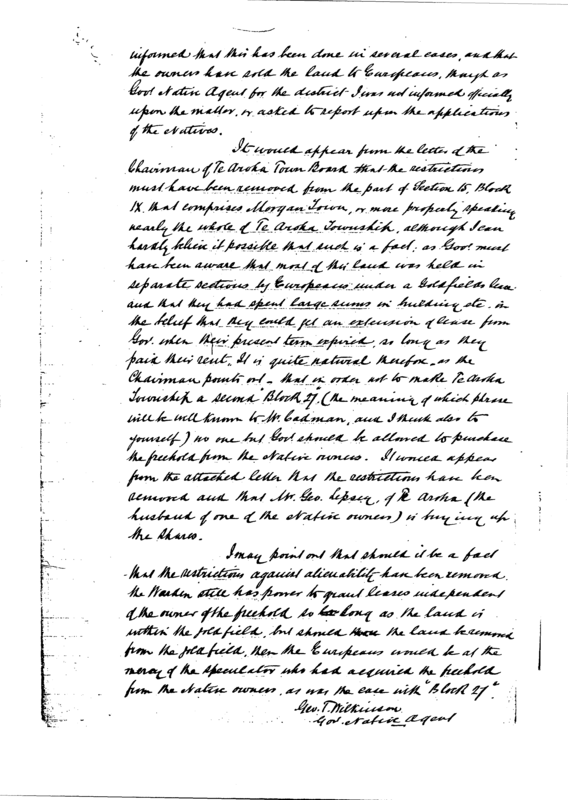 informed that this has been done in several cases, and that
the owners have sold the land to Europeans, though as
Govt Native Agent for the district I was not informed officially
upon the matter, or asked to report upon the applications
of the Natives.
It would appear from the letter of the
Chairman of Te Aroha Town Board that the restrictions
must have been removed from the part of Section 15, Block
IX, that comprises Morgan Town, or more properly speaking
nearly the whole of Te Aroha Township, although I can
hardly believe it possible that such is a fact; as Govt must
have been aware that most of this land was held in
separate sections by Europeans under a Goldfields lease
and that they had spent large sums in building etc. in
the belief that they could get an extension of lease from
Govt when their present term expired, so long as they
paid their rent. It is quite natural therefore, as the
Chairman points out - that in order not to make Te Aroha
Township a second "Block 27" (the meaning of which phrase
will be well known to Mr. Cadman, and I think also to
yourself) no one but Govt should be allowed to purchase
the freehold from the Native owners. It would appear
from the attached letter that the restrictions have been
removed and that Mr. Geo. Lipsey, of Te Aroha (the
husband of one of the Native owners) is buying up
the shares.
I may point out that should it be a fact
that the restrictions against alienability have been removed
the Warden still has power to grant leases independent
of the owner of the freehold so long as the land is
within the goldfield, but should the land be removed
from the goldfield, then the Europeans would be at the
mercy of the speculator who had acquired the freehold
from the Native owners, as was the case with "Block 27".
Geo. T. Wilkinson
Govt Native Agent